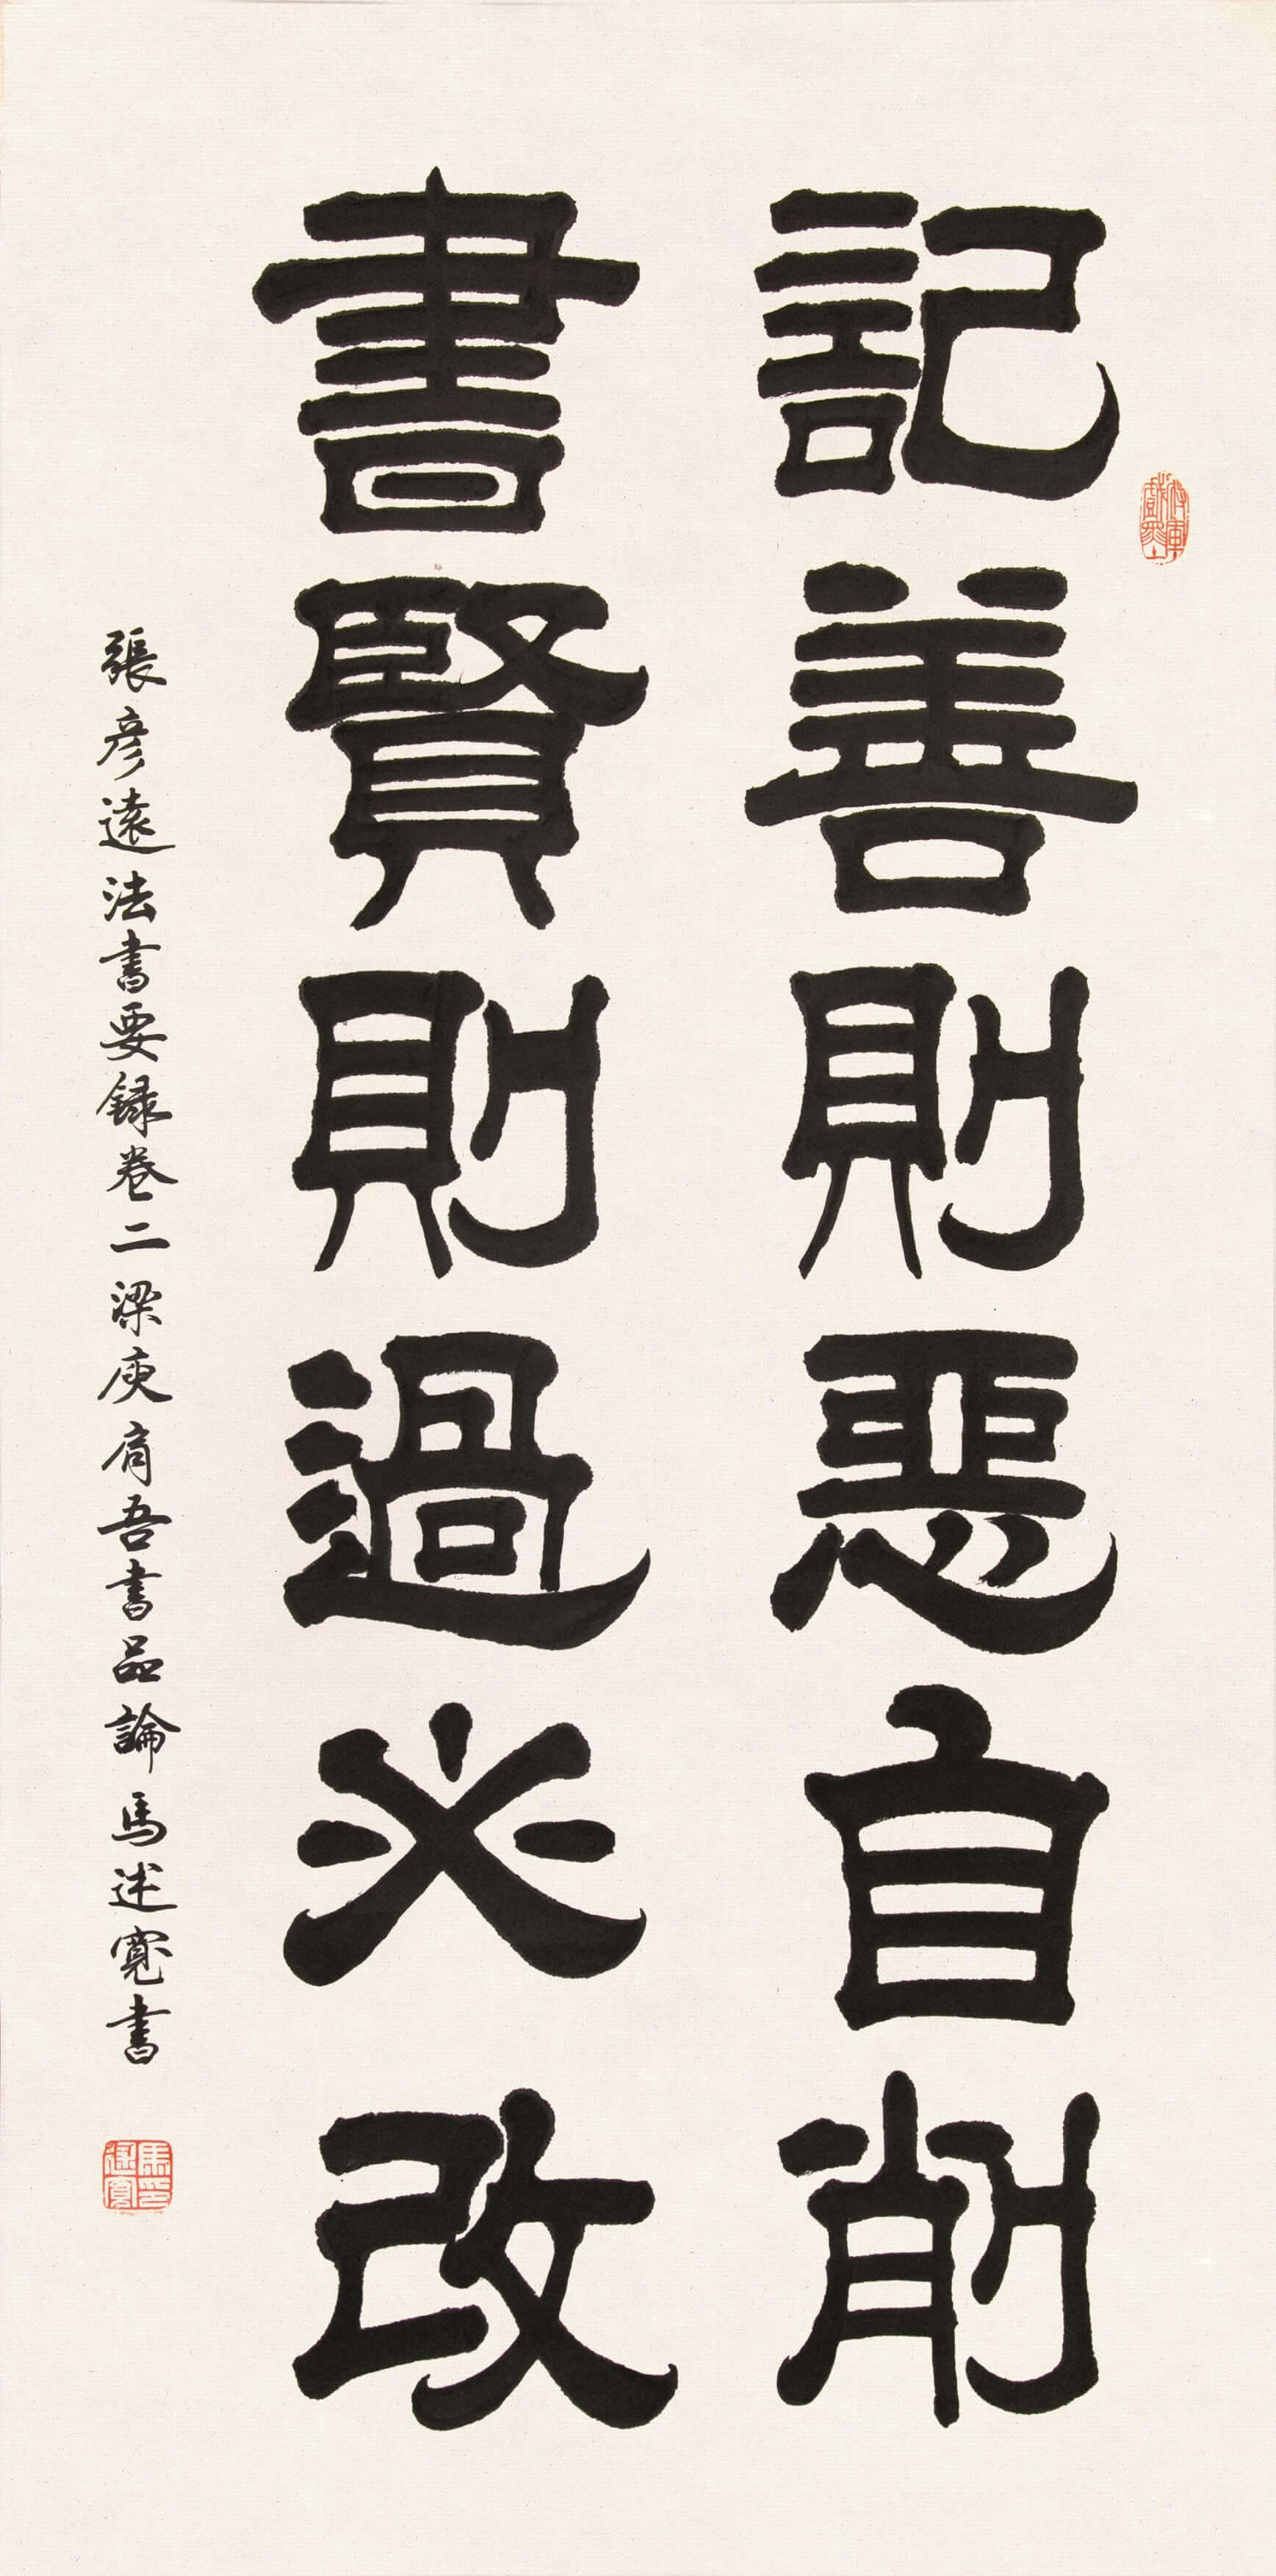 記善則惡自削
書賢則過必改
張彦遠法書要録卷二梁庾肩吾書品論馬述寬書